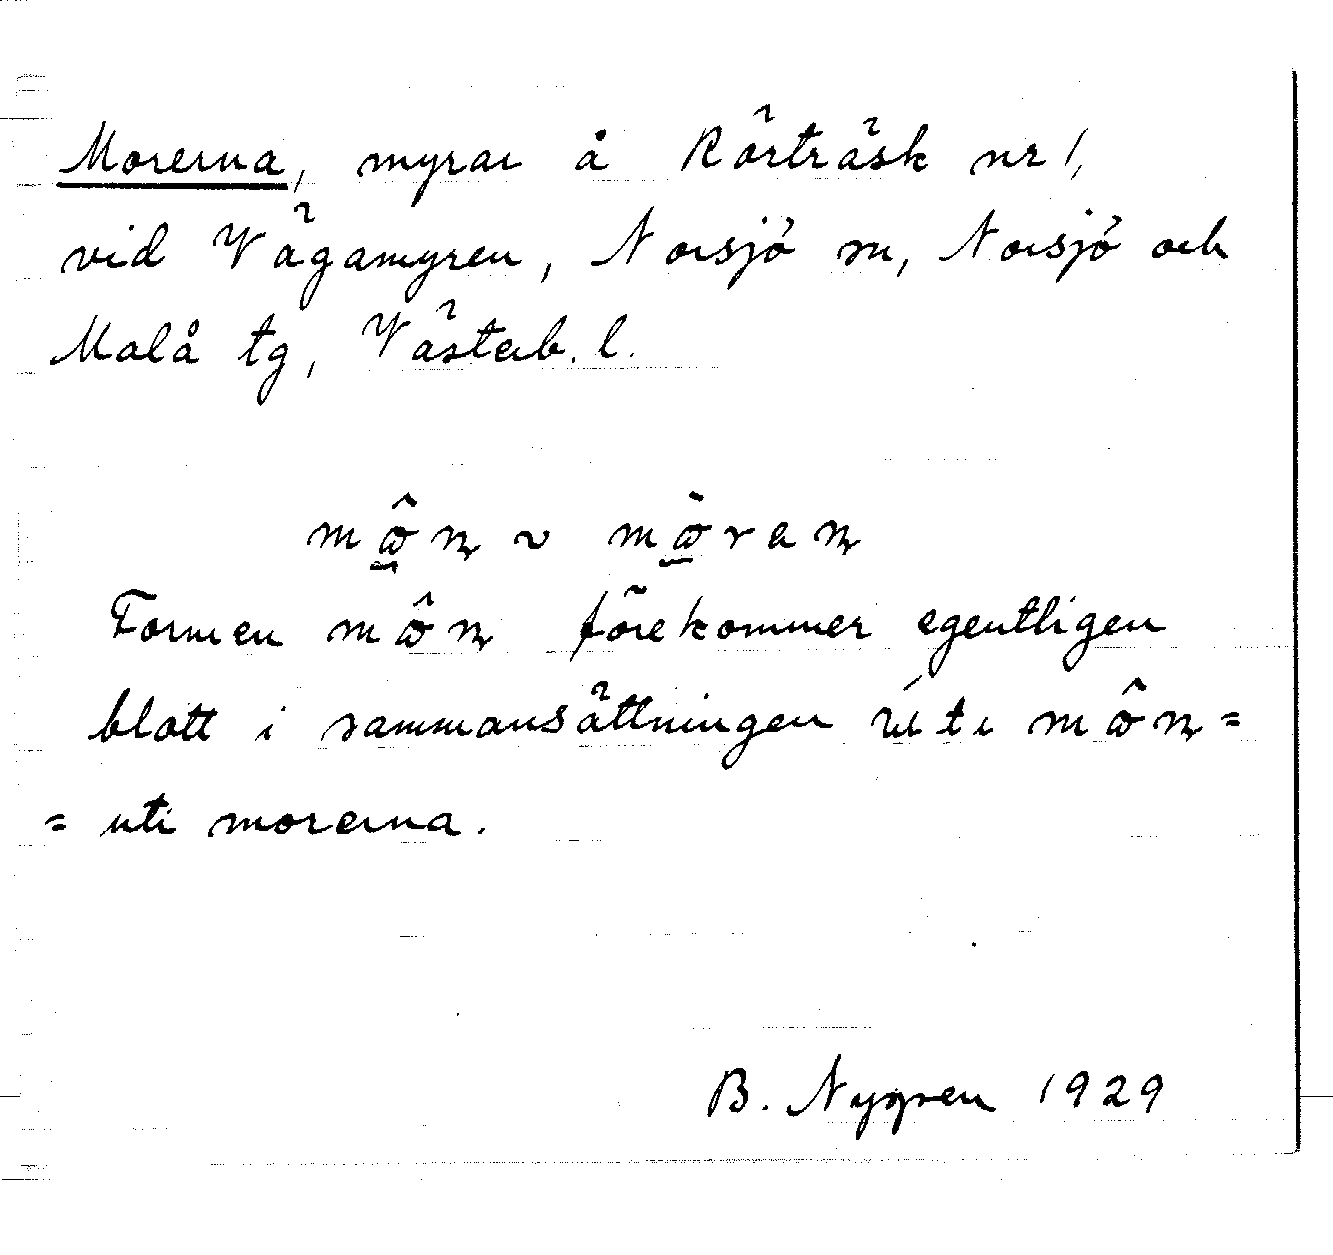 Morerna, myrar å Rörträsk nr 1,
vid Vägamyren, Norsjö sn, Norsjö och
Malå tg, Västerb. l.
Formen förekommer egentligen
blott i sammansättningen
= uti morerna.
B. Nygren 1929